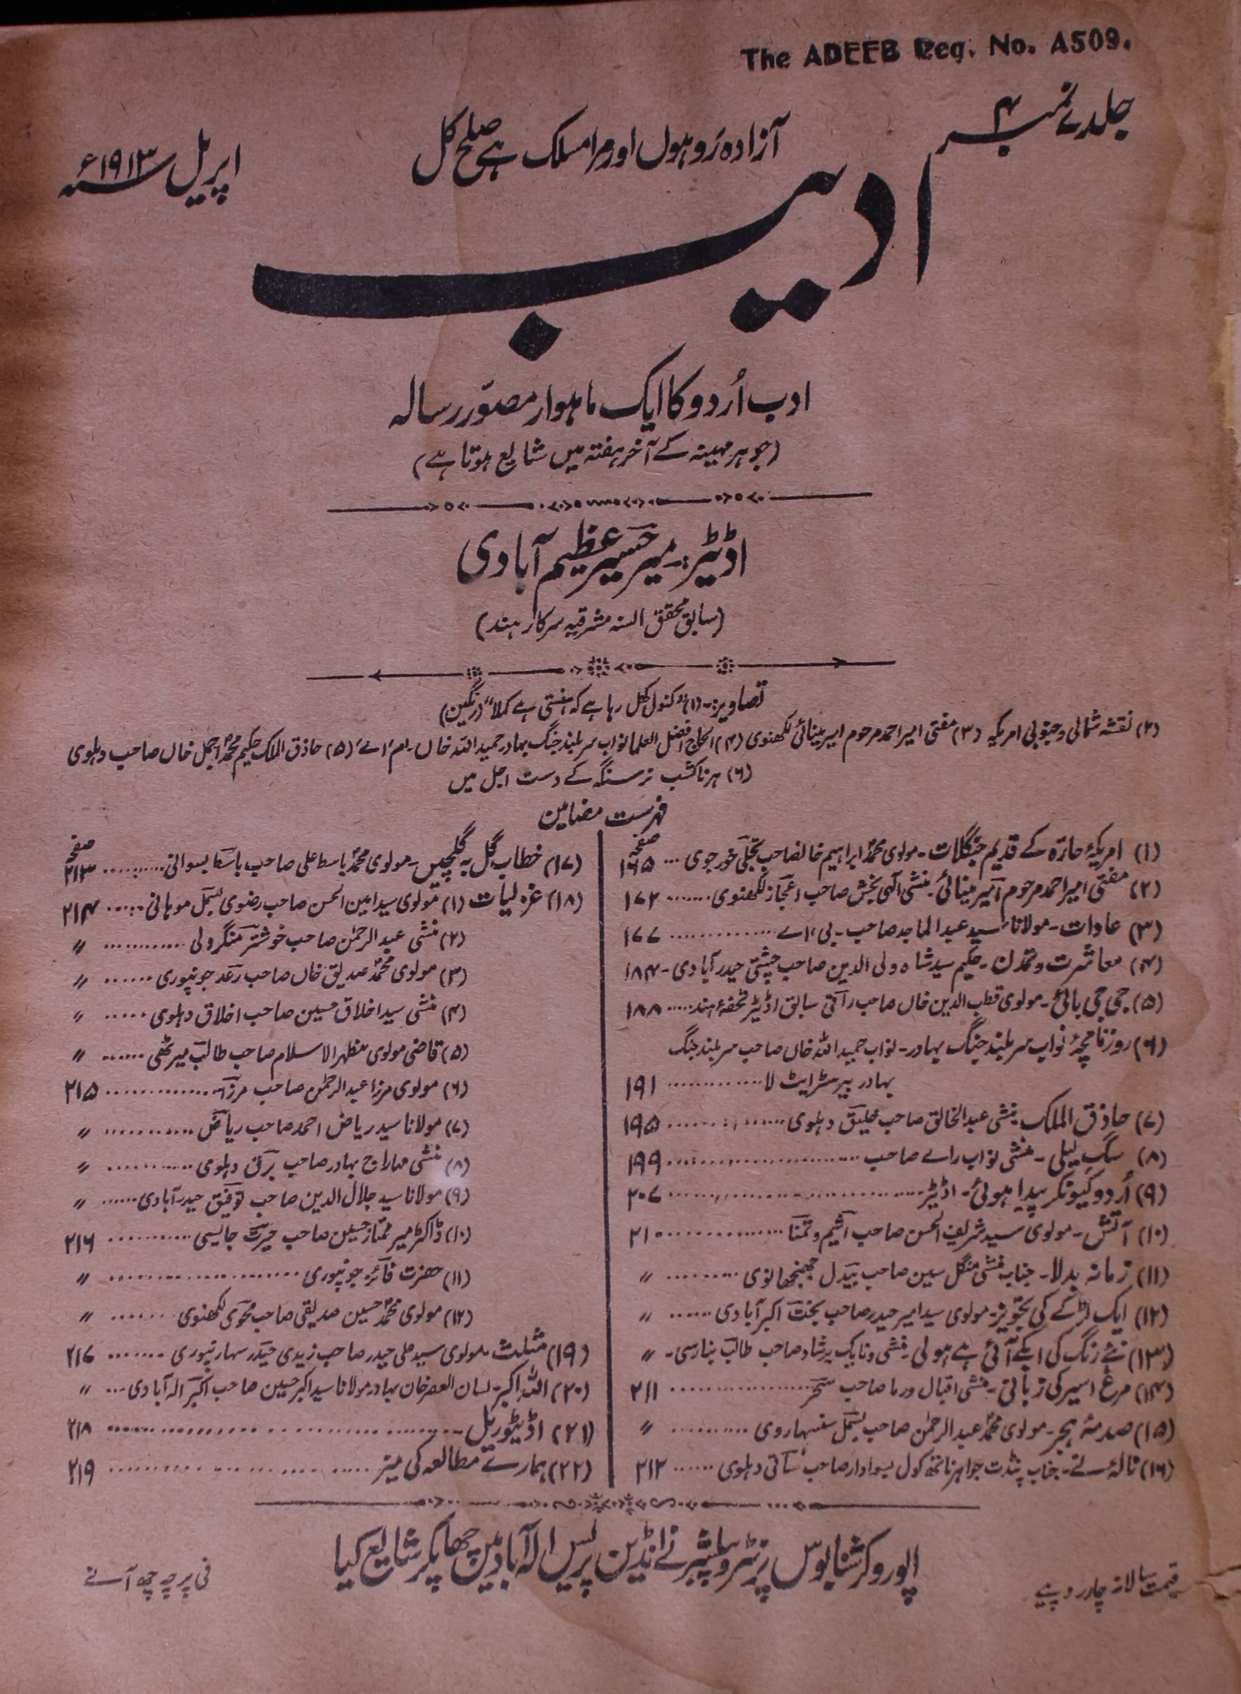 The ADEEB Reg. No. A509.
جلد ۷ نمبر ۴
آزادہ رَو ہوں اور مرا مسلک ہے صلح کل
اپریل سنہ ۱۹۱۳ء
ادیب
ادب اُردو کا ایک ماہوار مصوّر رسالہ
(جو ہر مہینہ کے آخر ہفتہ میں شایع ہوتا ہے)
اڈیٹر:۔ میر حسیر عظیم آبادی
(سابق محقق السنہ مشرقیہ سرکار ہند)
تصاویر:۔ (۱) "کنول کھل رہا ہے کہ ہنستی ہے کملا" (رنگین)
(۲) نقشہ شمالی و جنوبی امریکہ (۳) مفتی امیر احمد مرحوم امیر مینائی لکھنوی (۴) الحاج افضل العلما نواب سربلند جنگ بہادر حمید اللہ خاں۔ ایم اے (۵) حاذق الملک حکیم محمد اجمل خاں صاحب دہلوی
(۶) ہرناکشب نرسنگہ کے دست اجل میں
فہرست مضامین
صفحہ
(۱) امریکۂ حارّہ کے قدیم جنگلات۔ مولوی محمد ابراہیم خانصاحب تجلی خورجوی ... ۱۶۵
(۲) مفتی امیر احمد مرحوم امیر مینائی۔ منشی الٰہی بخش صاحب اعجاز لکھنوی ...... ۱۷۲
(۳) عادات۔ مولانا سید عبدالماجد صاحب۔ بی اے ............ ۱۷۷
(۴) معاشرت و تمدن۔ حکیم سید شاہ ولی الدین صاحب چشتی حیدرآبادی۔ ۱۸۴
(۵) جی جی بائی۔ مولوی قطب الدین خاں صاحب راقی سابق اڈیٹر تحفۂ ہند .... ۱۸۸
(۶) روزنامچہ نواب سربلند جنگ بہادر۔ نواب حمید اللہ خاں صاحب سربلند جنگ
بہادر بیرسٹر ایٹ لا ............ ۱۹۱
(۷) حاذق الملک۔ منشی عبدالخالق صاحب خلیق دہلوی ............ ۱۹۵
(۸) سگِ لیلی۔ منشی نواب راے صاحب .................... ۱۹۹
(۹) اُردو کیونکر پیدا ہوئی۔ اڈیٹر .................... ۲۰۷
(۱۰) آتش۔ مولوی سید شریف الحسن صاحب اثیم و تمنا ............ ۲۱۰
(۱۱) زمانہ بدلا۔ جناب منشی منگل سین صاحب بیدل جھنجھانوی ........ ״
(۱۲) ایک لڑکے کی تجویز۔ مولوی سید امیر حیدر صاحب بخت اکبرآبادی ...... ״
(۱۳) نئے رنگ کی ابکے آئی ہے ہولی۔ منشی ونایک پرشاد صاحب طالب بنارسی۔ ״
(۱۴) مرغ اسیر کی زبانی۔ منشی اقبال ورما صاحب سحر .............. ۲۱۱
(۱۵) صدمۂ ہجر۔ مولوی محمد عبدالرحمٰن صاحب بسمل سنسہاروی .......... ״
(۱۶) نالۂ نے۔ جناب پنڈت جواہر ناتھ کول صاحب ساقی دہلوی ...... ۲۱۲
صفحہ
(۱۷) خطاب گل بہ گلچیں۔ مولوی محمد باسط علی صاحب باسط بسوانی ........ ۲۱۳
(۱۸) غزلیات (۱) مولوی سید امین الحسن صاحب رضوی بسمل موہانی ...... ۲۱۴
(۲) منشی عبدالرحمٰن صاحب خوشتر منگرولی ............ ״
(۳) مولوی محمد صدیق خاں صاحب رعد جونپوری ...... ״
(۴) منشی سید اخلاق حسین صاحب اخلاق دہلوی ...... ״
(۵) قاضی مولوی مظہر الاسلام صاحب طالب میرٹھی ...... ״
(۶) مولوی مرزا عبدالرحمٰن صاحب مرزا ............ ۲۱۵
(۷) مولانا سید ریاض احمد صاحب ریاض ............ ״
(۸) منشی مہاراج بہادر صاحب برق دہلوی .......... ״
(۹) مولانا سید جلال الدین صاحب توفیق حیدرآبادی ...... ״
(۱۰) ڈاکٹر میر ممتاز حسین صاحب حیرت جائسی .......... ۲۱۶
(۱۱) حضرت فائز جونپوری .................... ״
(۱۲) مولوی محمد حسین صدیقی صاحب محوی لکھنوی ........ ״
(۱۹) مثلث۔ مولوی سید علی حیدر صاحب زیدی حیدر سہارنپوری ........ ۲۱۷
(۲۰) اللہ اکبر۔ لسان العصر خان بہادر مولانا سید اکبر حسین صاحب اکبر الہ آبادی ... ״
(۲۱) اڈیٹوریل .................... ۲۱۸
(۲۲) ہمارے مطالعہ کی میز .................... ۲۱۹
اپوروکرشنا بوس پرنٹر و پبلشر نے انڈین پریس الہ آباد میں چھاپکر شایع کیا
قیمت سالانہ چار روپیے
فی پرچہ چھ آنے